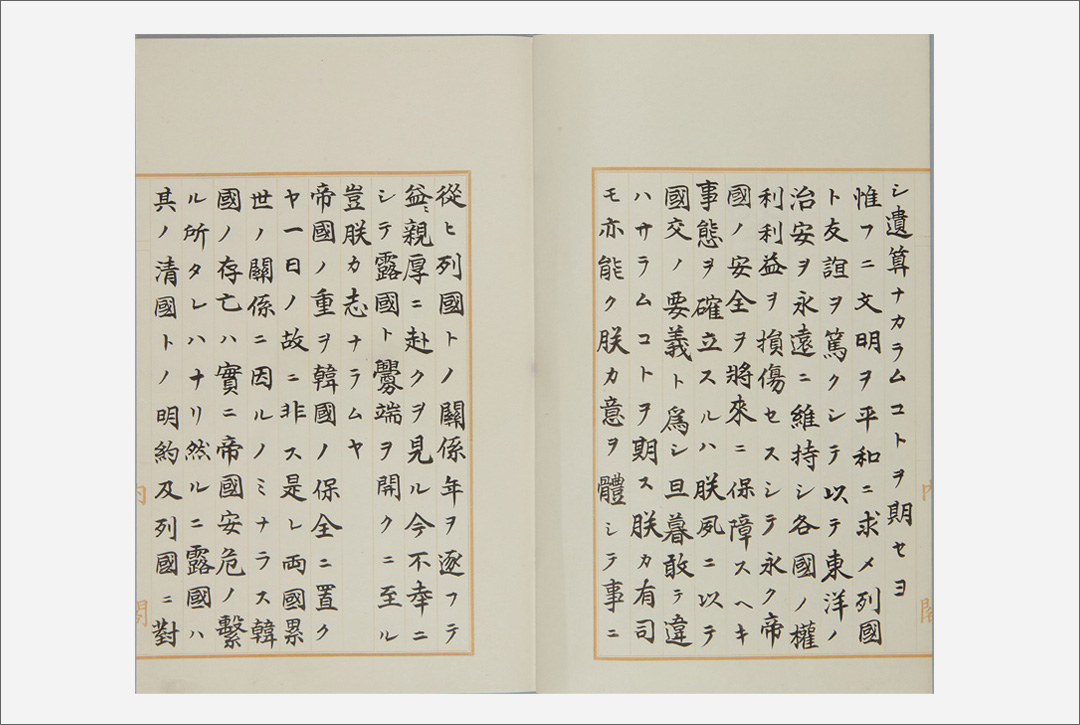 シ遺算ナカラムコトヲ期セヨ
惟フニ文明ヲ平和ニ求メ列國
ト友誼ヲ篤クシテ以テ東洋ノ
治安ヲ永遠ニ維持シ各國ノ權
利利益ヲ損傷セスシテ永ク帝
國ノ安全ヲ將來ニ保障スヘキ
事態ヲ確立スルハ朕夙ニ以テ
國交ノ要義ト爲シ旦暮敢テ違
ハサラムコトヲ期ス朕カ有司
モ亦能ク朕カ意ヲ體シテ事ニ
從ヒ列國トノ關係年ヲ逐フテ
益〻親厚ニ赴クヲ見ル今不幸ニ
シテ露國ト釁端ヲ開クニ至ル
豈朕カ志ナラムヤ
帝國ノ重ヲ韓國ノ保全ニ置ク
ヤ一日ノ故ニ非ス是レ両國累
世ノ關係ニ因ルノミナラス韓
國ノ存亡ハ實ニ帝國安危ノ繫
ル所タレハナリ然ルニ露國ハ
其ノ清國トノ明約及列國ニ對